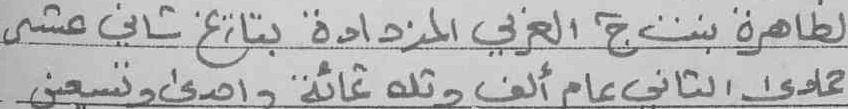 لطاهرة بنت ج العربي المزدادة بتاريخ ثاني عشر
جمادى الثاني عام ألف وثلاثمائة واحدى وتسعين